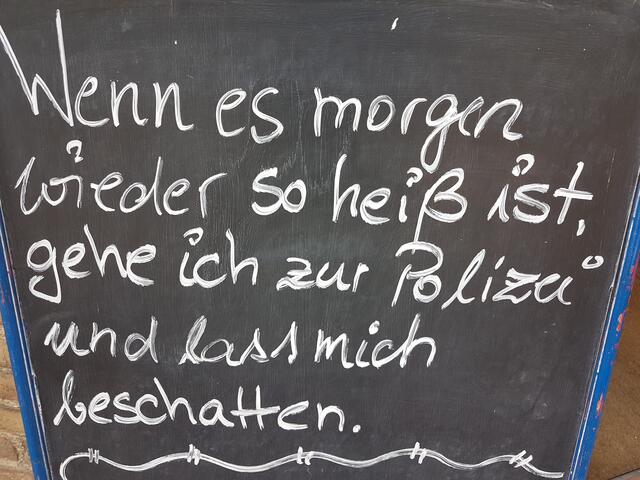 Wenn es morgen
wieder so heiß ist,
gehe ich zur Polizei
und lass mich
beschatten.